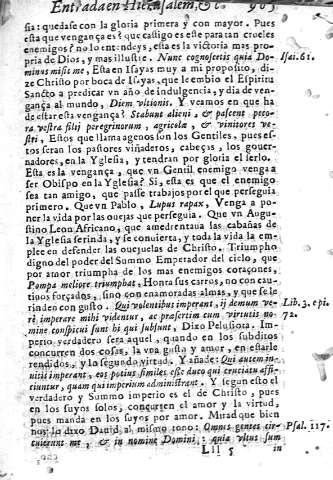 Entrada en Hierusalem, &c. 905
sia: quedase con la gloria primera y con mayor. Pues
esta que vengança es? que castigo es este para tan crueles
enemigos? no lo entendeys, esta es la victoria mas pro-
pria de Dios, y mas illustre. Nunc cognoscetis quia Do- Isai. 61.
minus misit me, Esta en Isayas muy a mi proposito, di-
ze Christo por boca de Isayas, que le embio el Espiritu
Sancto a predicar vn año de indulgencia, y dia de ven-
gança al mundo, Diem vltionis. Y veamos en que ha
de estar esta vengança? Stabunt alieni, & pascent peco-
ra vestra filij peregrinorum, agricolæ, & vinitores ve-
stri, Estos que llama agenos son los Gentiles, pues es-
tos seran los pastores viñaderos, cabeças, los gouer-
nadores, en la Yglesia, y tendran por gloria el serlo.
Esta es la vengança, que vn Gentil enemigo venga a
ser Obispo en la Yglesia? Si, essa es que el enemigo
sea tan amigo, que passe trabajos por el que perseguia
primero. Que vn Pablo, Lupus rapax, Venga a po-
ner la vida por las ouejas que perseguia. Que vn Augu-
stino Leon Africano, que amedrentaua las cabañas de
la Yglesia se rinda, y se conuierta, y toda la vida la em-
plee en defender las ouejuelas de Christo. Triumpho
digno del poder del Summo Emperador del cielo, que
por amor triumpha de los mas enemigos coraçones,
Pompa meliore triumphat, Honra sus carros, no con cau-
tiuos forçados, sino con enamoradas almas, y que se le
rinden con gusto. Qui volentibus imperant, ij demum ve- Lib. 3. epi.
rè imperare mihi videntur, ac præsertim cum virtutis no- 72.
mine conspicui sunt hi qui subsunt, Dixo Pelusiota. Im-
perio verdadero sera aquel, quando en los subditos
concurren dos cosas, la vna gusto y amor, en estarle
rendidos, y la segunda virtud. Y añade: Qui autem in-
uitis imperant, eos potius similes esse duco qui cruciatu affi-
ciuntur, quam qui imperium administrant. Y segun esto el
verdadero y Summo imperio es el de Christo, pues
en los suyos solos, concurren el amor y la virtud,
pues manda en los suyos por amor. Mirad que bien
nos lo dixo Dauid al mismo tono: Omnes gentes cir- Psal. 117.
cuierunt me, & in nomine Domini, quia vltus sum
Lll 5 in